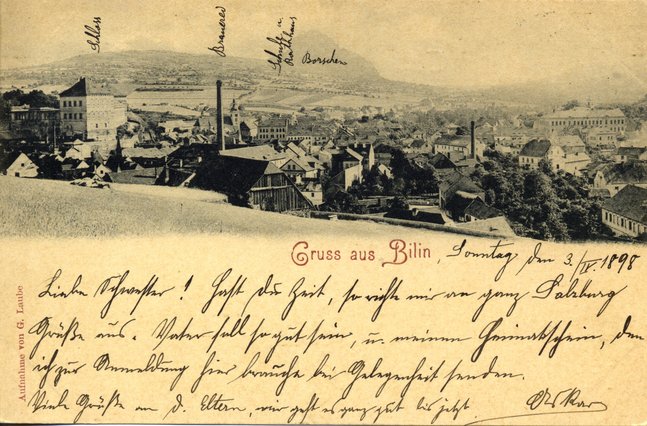 Schloss
Brauerei
Schule u.
Rathhaus
Borschen
Gruss aus Bilin, Sonntag den 3./IV. 1898
Aufnahme von G. Laube
Liebe Schwester! Hast du Zeit, so richte mir an ganz Salzburg
Grüße aus. Vater soll so gut sein, u. meinen Heimatschein, den
ich zur Anmeldung hier brauche bei Gelegenheit senden.
Viele Grüße an d. Eltern, mir geht es ganz gut bis jetzt.
Oskar